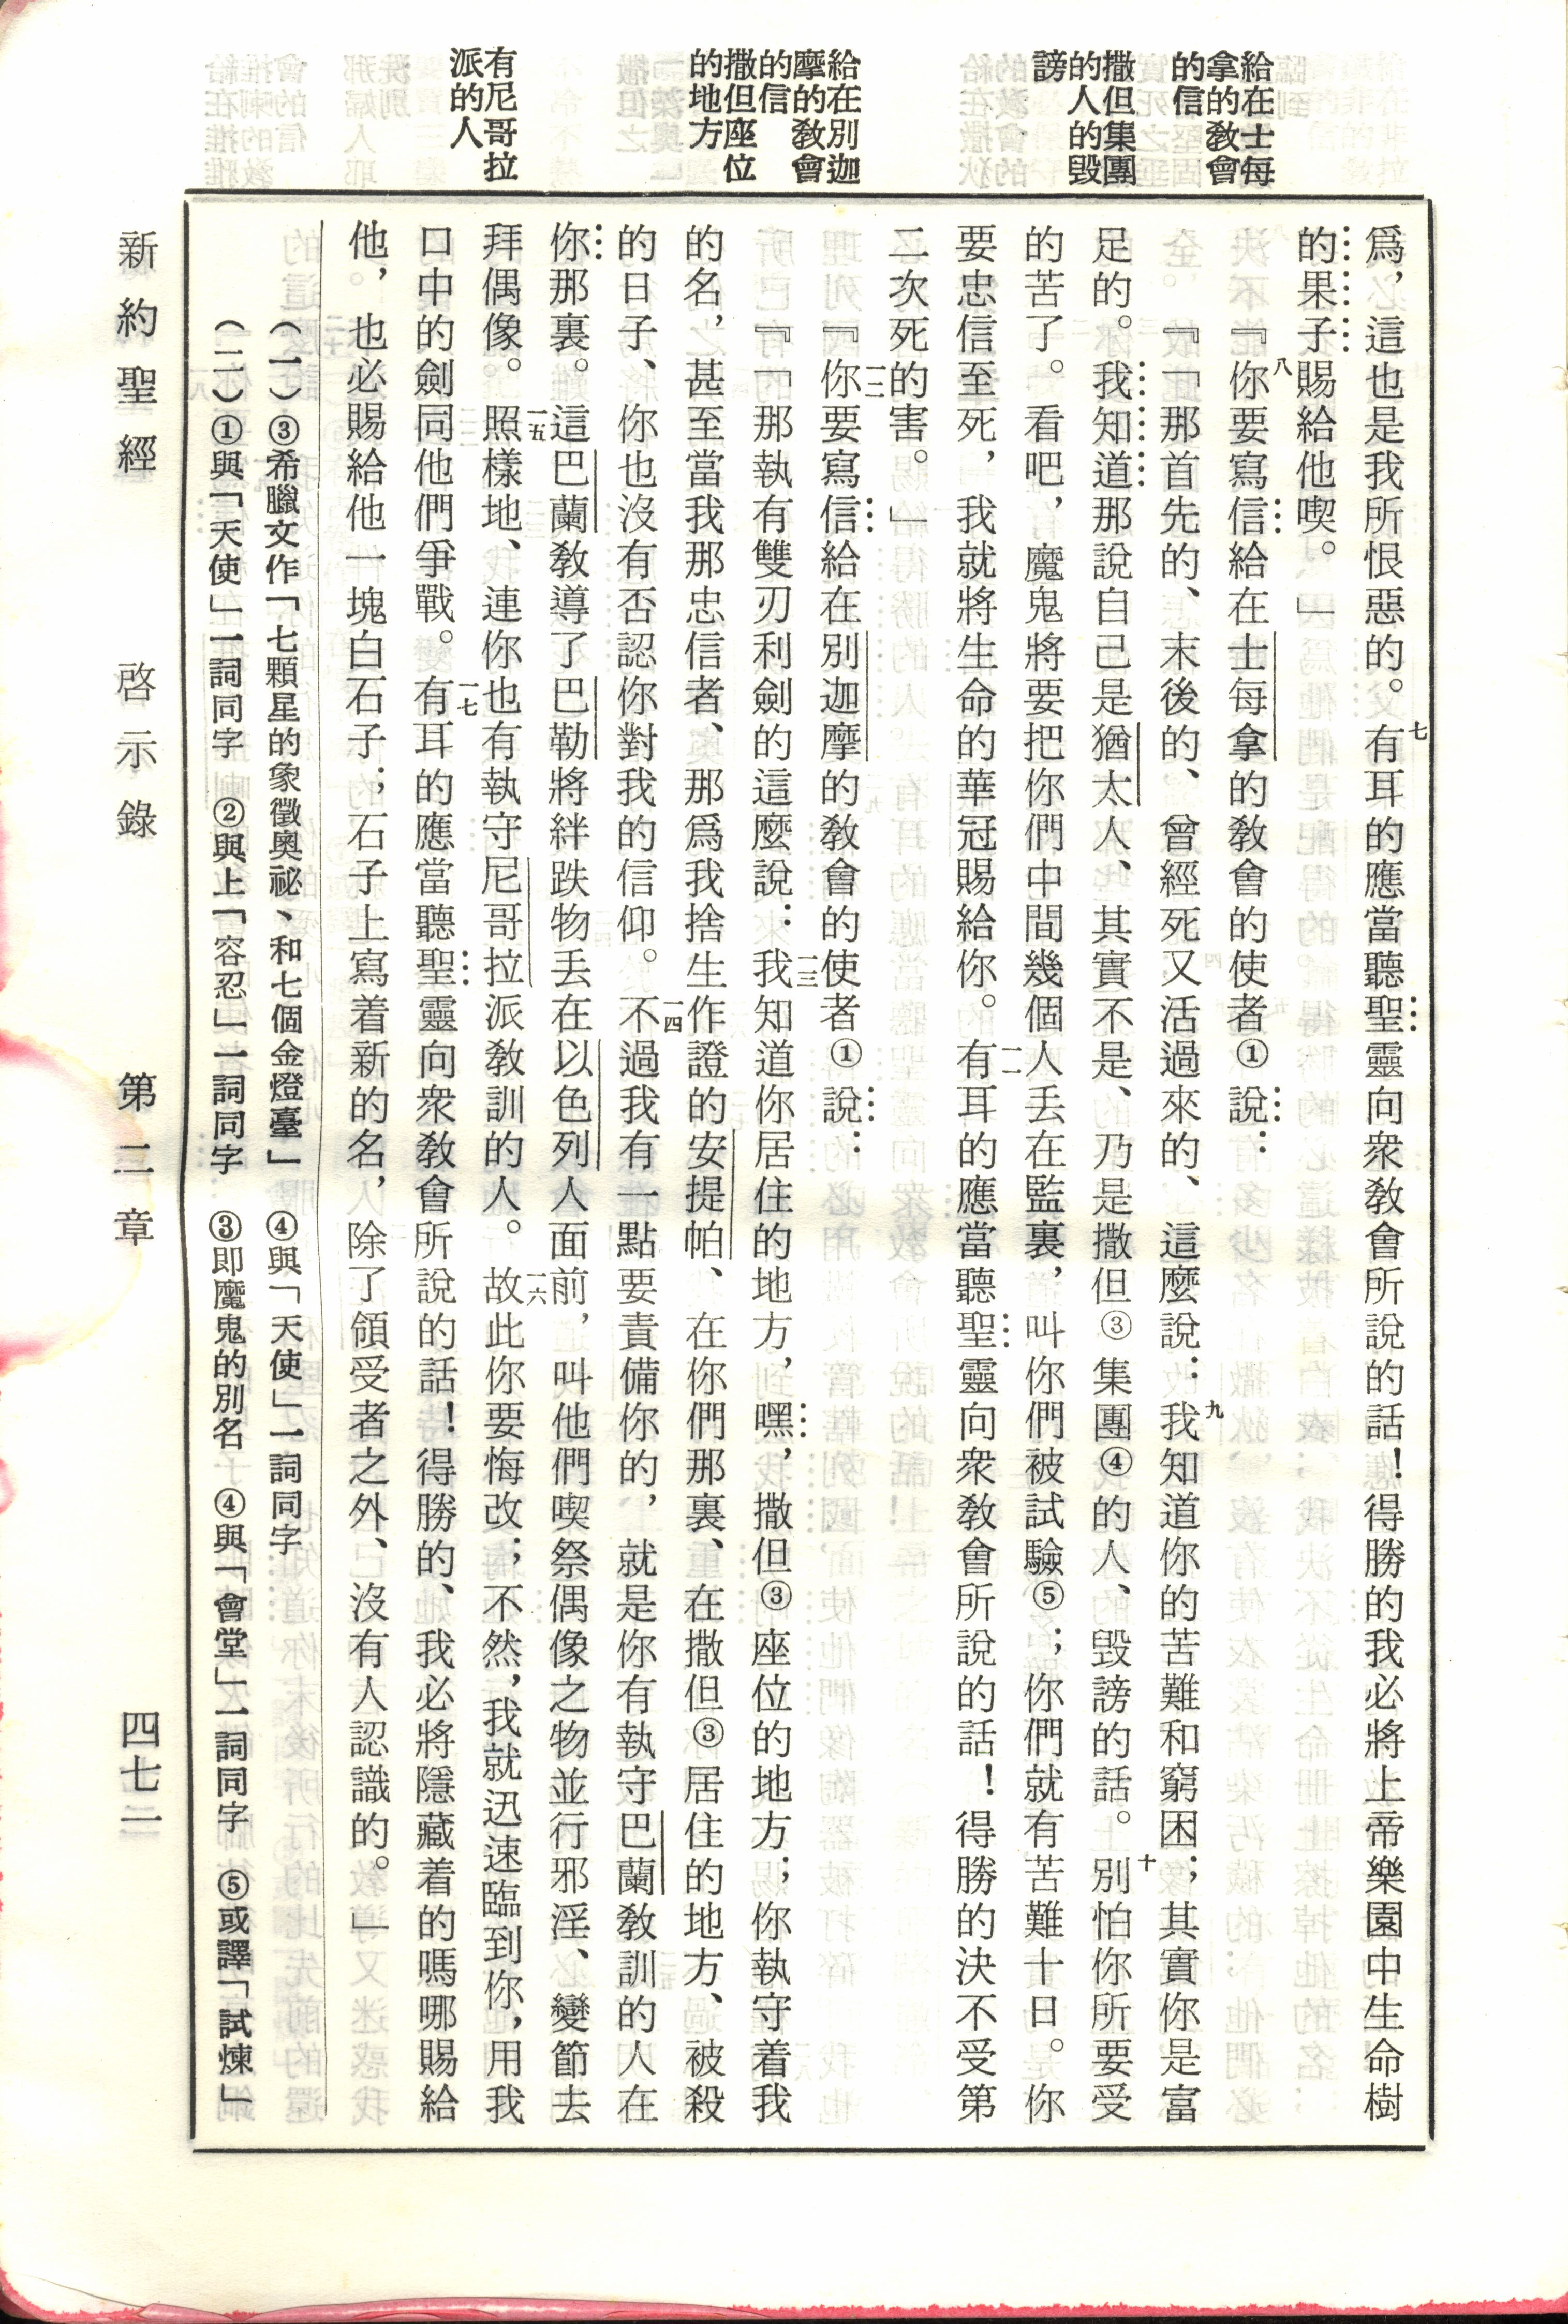 給在士每
拿的教會
的信
撒但集團
的人的毀
謗
給在別迦
摩的教會
的信
撒但座位
的地方
有尼哥拉
派的人
爲，這也是我所恨惡的。七有耳的應當聽聖靈向衆教會所說的話！得勝的我必將上帝樂園中生命樹
的果子賜給他喫。」
八『你要寫信給在士每拿的教會的使者①說：
『「那首先的、末後的、曾經死又活過來的、這麼說：九我知道你的苦難和窮困；其實你是富
足的。我知道那說自己是猶太人、其實不是、乃是撒但③集團④的人、毀謗的話。十別怕你所要受
的苦了。看吧，魔鬼將要把你們中間幾個人丟在監裏，叫你們被試驗⑤；你們就有苦難十日。你
要忠信至死，我就將生命的華冠賜給你。一一有耳的應當聽聖靈向衆教會所說的話！得勝的決不受第
二次死的害。」
一二『你要寫信給在別迦摩的教會的使者①說：
『「那執有雙刃利劍的這麼說：一三我知道你居住的地方，嘿，撒但③座位的地方；你執守着我
的名，甚至當我那忠信者、那爲我捨生作證的安提帕、在你們那裏、在撒但③居住的地方、被殺
的日子、你也沒有否認你對我的信仰。一四不過我有一點要責備你的，就是你有執守巴蘭教訓的人在
你那裏。這巴蘭教導了巴勒將絆跌物丟在以色列人面前，叫他們喫祭偶像之物並行邪淫、變節去
拜偶像。一五照樣地、連你也有執守尼哥拉派教訓的人。一六故此你要悔改；不然，我就迅速臨到你，用我
口中的劍同他們爭戰。一七有耳的應當聽聖靈向衆教會所說的話！得勝的、我必將隱藏着的嗎哪賜給
他，也必賜給他一塊白石子；石子上寫着新的名，除了領受者之外、沒有人認識的。」
（一）③希臘文作「七顆星的象徵奧祕、和七個金燈臺」 ④與「天使」一詞同字
（二）①與「天使」一詞同字 ②與上「容忍」一詞同字 ③即魔鬼的別名 ④與「會堂」一詞同字 ⑤或譯「試煉」
新約聖經 啓示錄 第二章 四七一